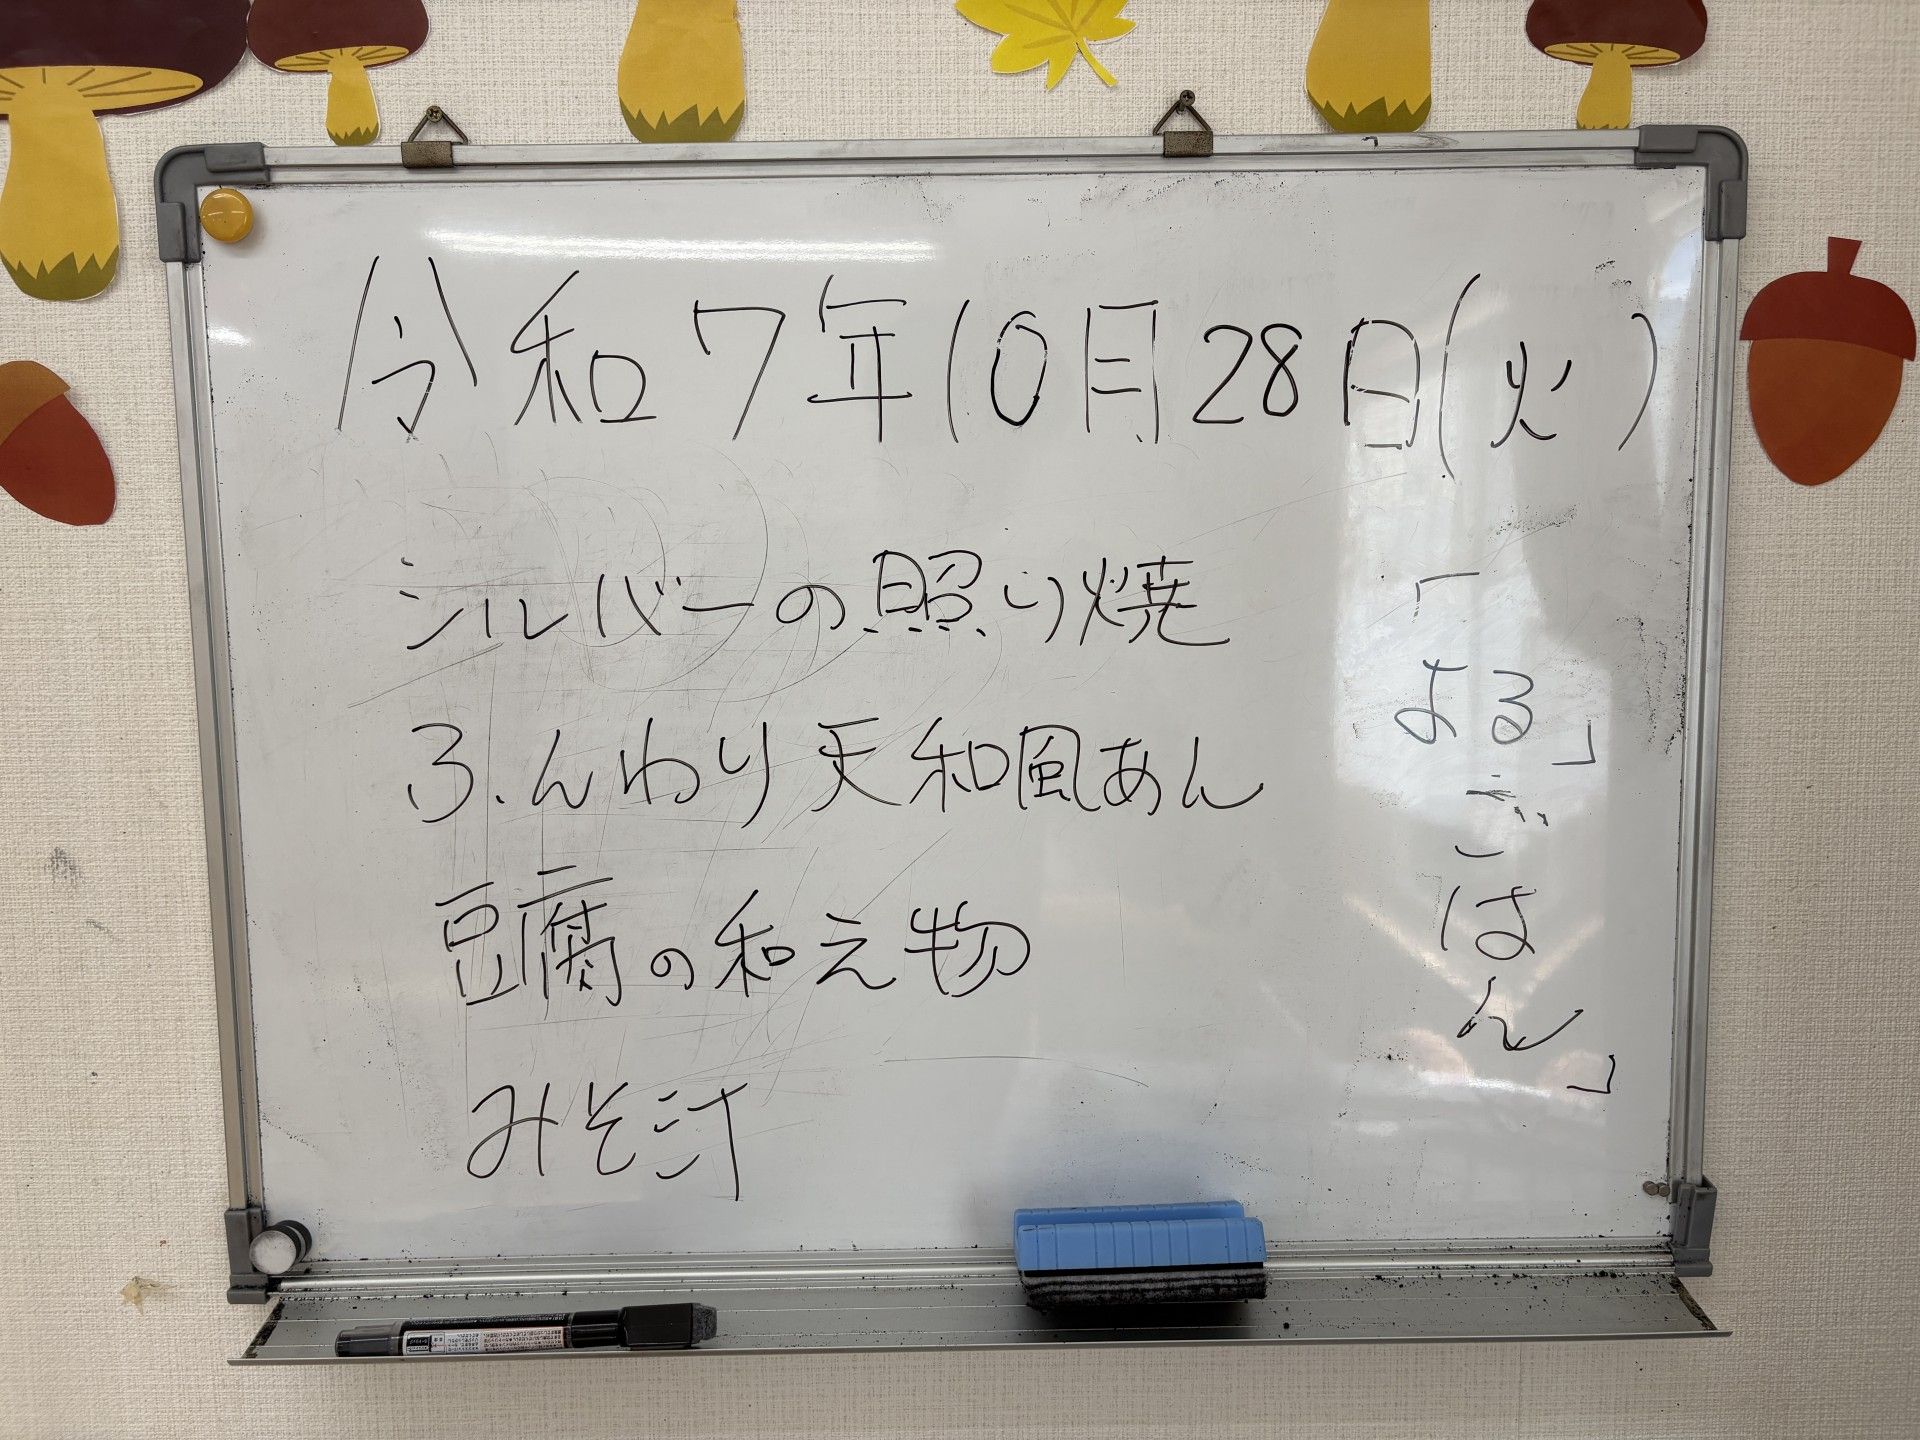 令和7年10月28日(火)
シルバーの照り焼
ふんわり天和風あん
豆腐の和え物
みそ汁
「よる」ごはん」